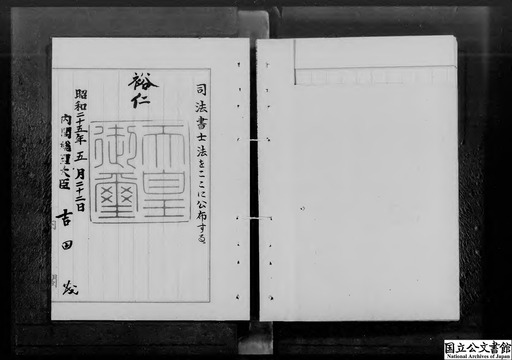 司法書士法をここに公布する
裕仁
天皇
御璽
昭和二十五年五月二十二日
内閣総理大臣
吉田茂
国立公文書館
National Archives of Japan